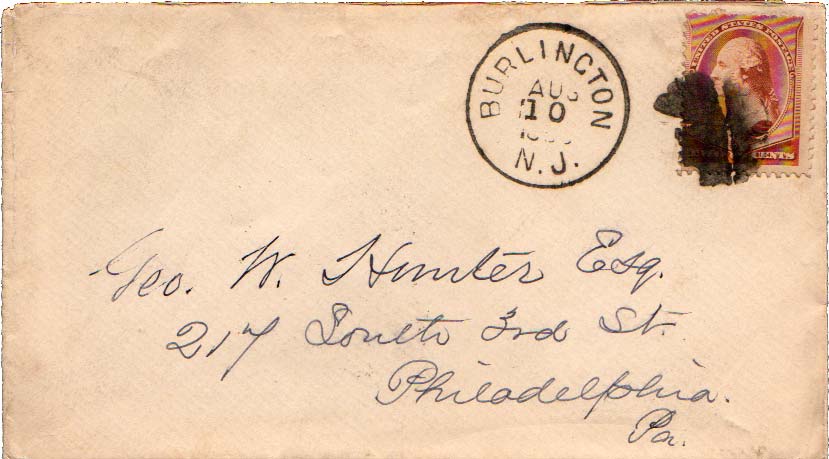 BURLINGTON
AUG
10
N. J.
UNITED STATES POSTAGE
CENTS
Geo. W. Hunter Esq.
217 South 3rd St.
Philadelphia.
Pa.